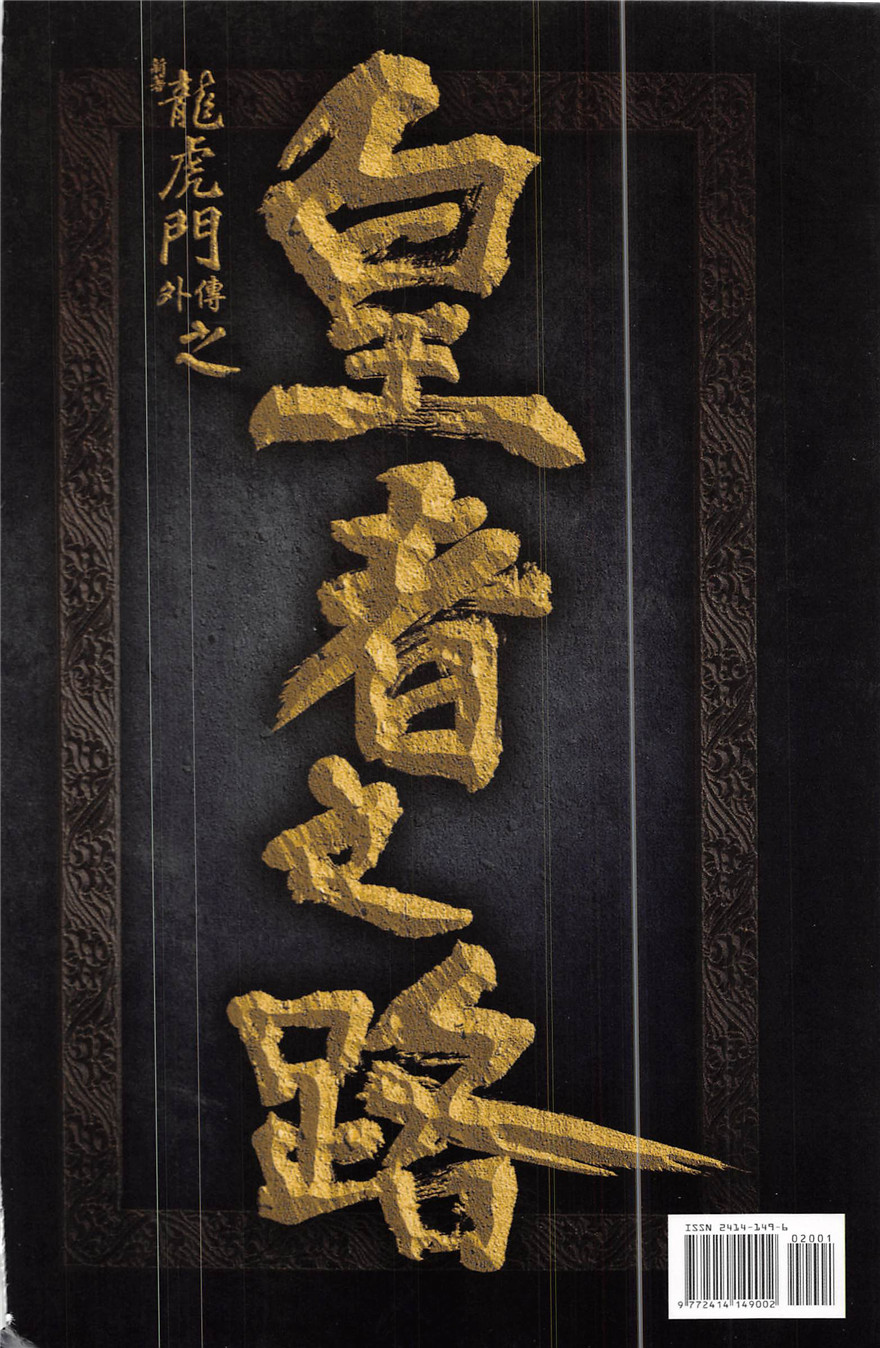 新著
龍虎門
外傳
之
皇者之路
ISSN 2414-149-6
02001
9 772414 149002